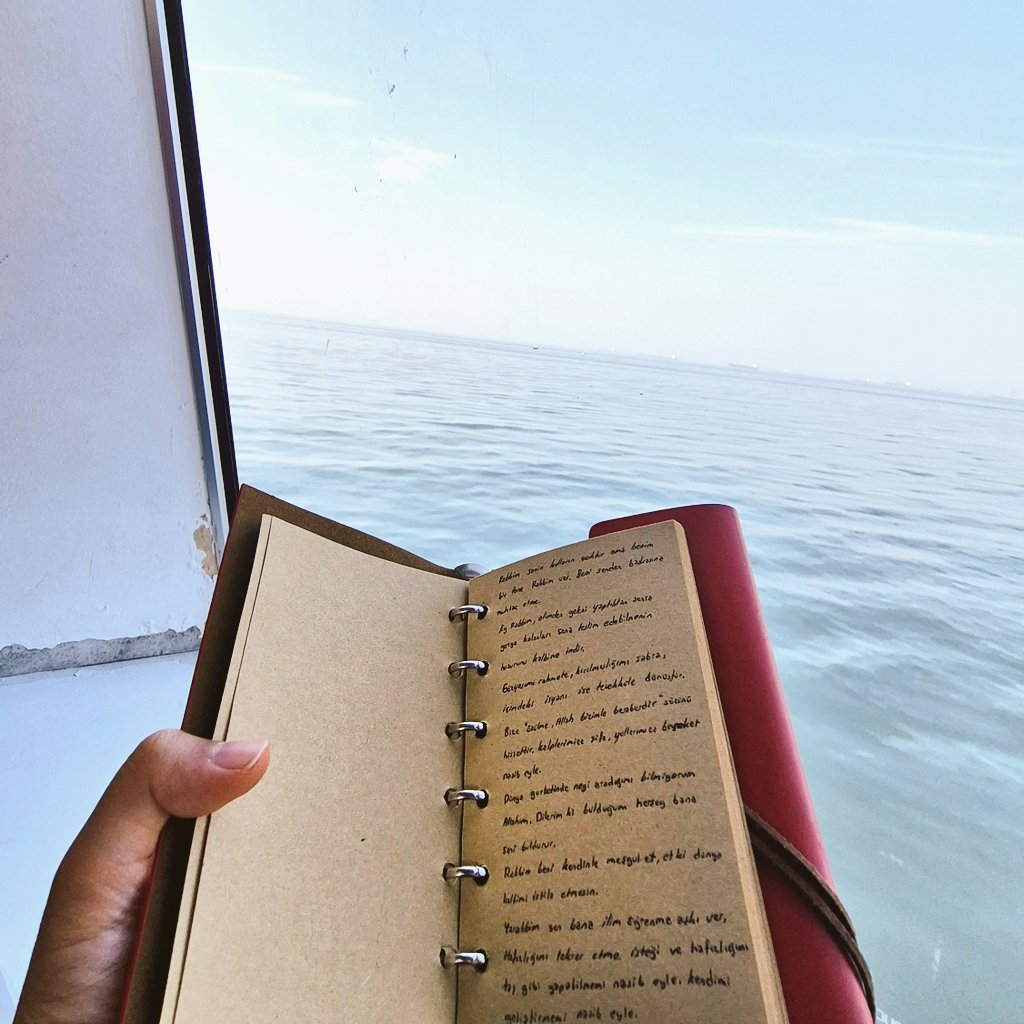 Rabbim senin kulların çoktur ama benim
bir tane Rabbim var. Beni senden başkasına
muhtaç etme.
Ey Rabbim, elimden geleni yaptıktan sonra
geriye kalanları sana teslim edebilmenin
huzurunu kalbime indir.
kırılmışlığımı sabra,
içimdeki isyanı ise tevekküle dönüştür.
Bize "Üzülme, Allah bizimle beraberdir" sözünü
hissettir, kalplerimize şifa, yollarımıza bereket
nasib eyle.
Dünya gurbetinde neyi aradığımı bilmiyorum
Allahım, Dilerim ki bulduğum herşey bana
seni buldurur.
Rabbim beni kendinle meşgul et, et ki dünya
kalbimi istila etmesin.
Yarabbim sen bana ilim öğrenme aşkı ver,
Hafızlığımı tekrar etme isteği ve hafızlığımı
taş gibi yapabilmemi nasib eyle. kendimi
geliştirmemi nasib eyle.